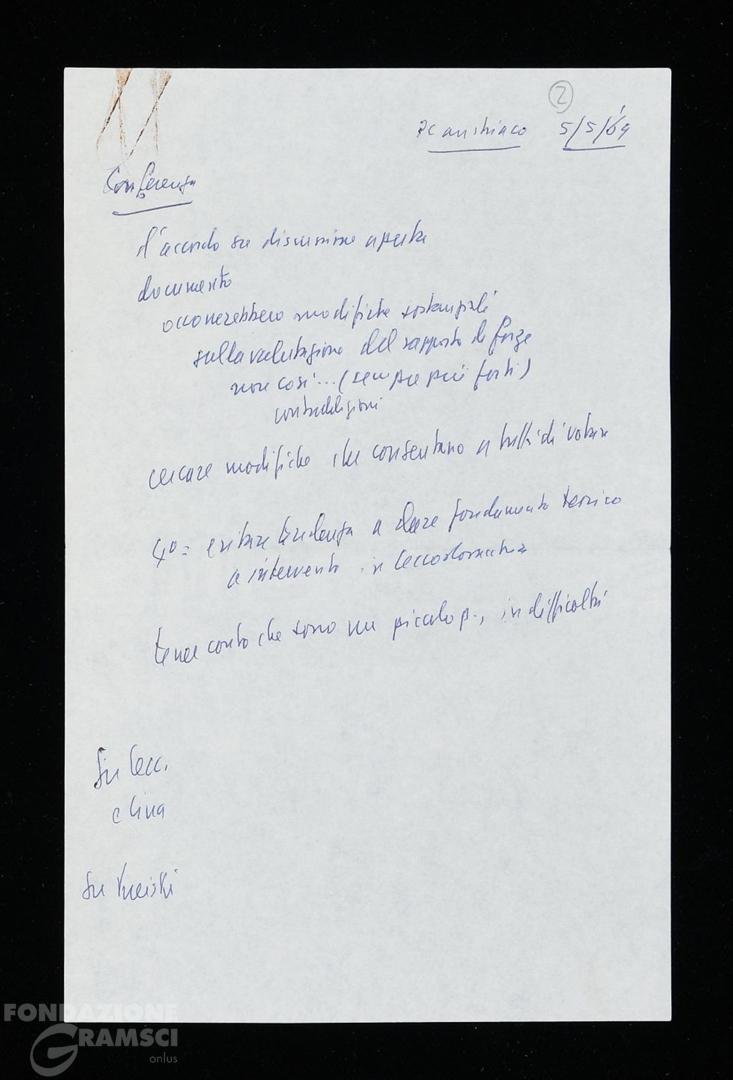 2
PC austriaco 5/5/69
Conferenza
d'accordo su discussione aperta
documento
occorrerebbero modifiche sostanziali
sulla valutazione del rapporto di forze
non così... (sempre più forti)
contraddizioni
cercare modifiche che consentano a tutti di votare
4° = evitare tendenza a dare fondamento teorico
a intervento in Cecoslovacchia
tener conto che sono un piccolo p., in difficoltà
Su Cecc.
e Cina
Su
FONDAZIONE
GRAMSCI
onlus